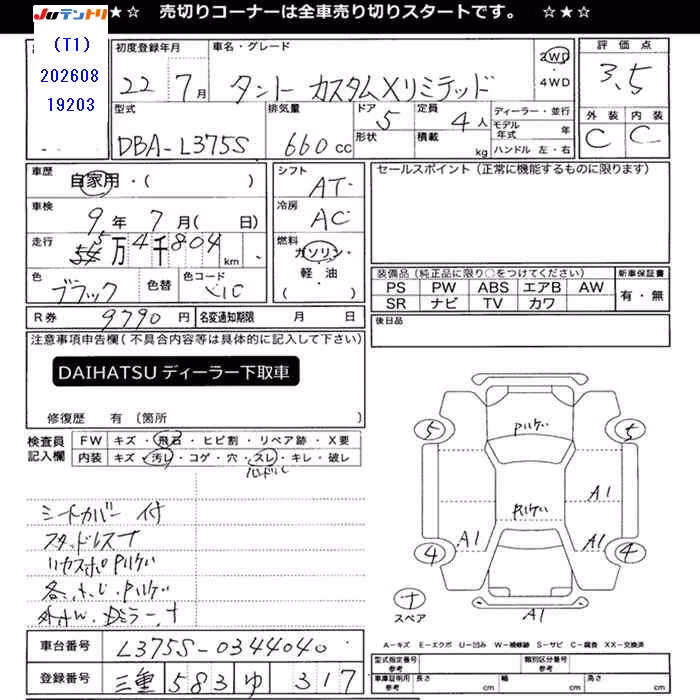 ★☆ 売切りコーナーは全車売り切りスタートです。 ☆★☆
JUテントリ
(T1)
202608
19203
初度登録年月 車名・グレード
22 7月 タント カスタムXリミテッド
2WD
・4WD
評価点
3.5
型式 排気量 ドア 定員
DBA-L375S 660cc 5 4人
形状 積載 kg
ディーラー・並行
モデル年式 年
ハンドル 左・右
外装 内装
C C
車歴 自家用・( )
シフト AT
車検 9年 7月( 日)
冷房 AC
走行 5万4千804km
燃料 ガソリン・軽油・( )
色 ブラック 色替 色コード
R券 9790円 名変通知期限 月 日
セールスポイント(正常に機能するものに限ります)
装備品(純正品に限り○をつけてください) 新車保証書
PS PW ABS エアB AW
SR ナビ TV カワ
有・無
後日品
注意事項申告欄(不具合内容等は具体的に記入して下さい)
DAIHATSU ディーラー下取車
修復歴 有(箇所
検査員記入欄
FW キズ・飛石・ヒビ割・リペア跡・X要
内装 キズ・汚レ・コゲ・穴・スレ・キレ・破レ
シートカバー付
5 5
4 4
A1
A1
A1
A1
スペア
A-キズ E-エクボ U-凹み W-補修跡 S-サビ C-腐食 XX-交換済
車台番号 L375S-0344040
登録番号 三重 583 ゆ 317
型式指定番号 参考 類別区分番号 参考
車庫証明用 参考 長さ cm 幅 cm 高さ cm